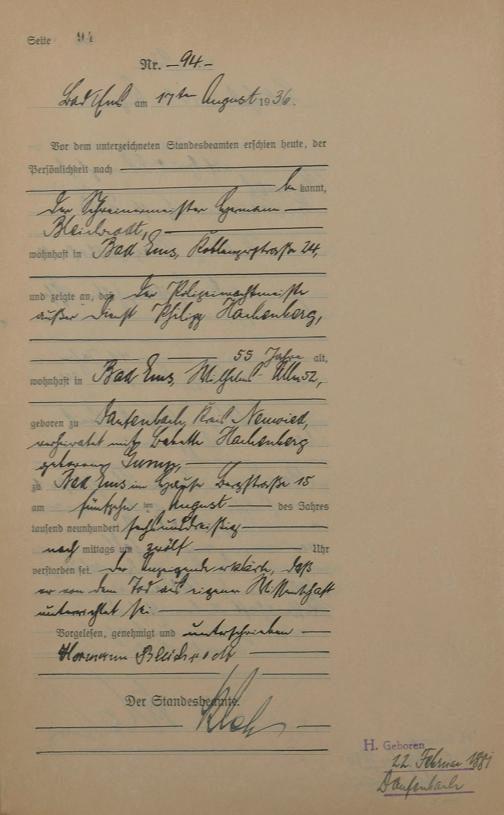 Seite 94
Nr. 94.
Bad Ems am 17ten August 1936.
Vor dem unterzeichneten Standesbeamten erschien heute, der
Persönlichkeit nach
bekannt,
der Schreinermeister Hermann
Bleichrodt,
wohnhaft in Bad Ems, Koblenzerstraße 24,
und zeigte an, daß der Polizeiwachtmeister
außer Dienst Philipp Hachenberg,
55 Jahre alt,
wohnhaft in Bad Ems, Wilhelms Allee 52,
geboren zu Daufenbach, Kreis Neuwied,
verheiratet mit Babette Hachenberg
geborene
zu Bad Ems im Hause Bergstraße 15
am fünfzehn ten August des Jahres
tausend neunhundert sechsunddreißig
nach mittags um zwölf Uhr
verstorben sei. Der Anzeigende erklärte, daß
er von dem Tod aus eigener Wissenschaft
unterrichtet sei
Vorgelesen, genehmigt und unterschrieben
Hermann Bleichrodt
Der Standesbeamte.
H. Geboren
22. Februar 1881
Daufenbach